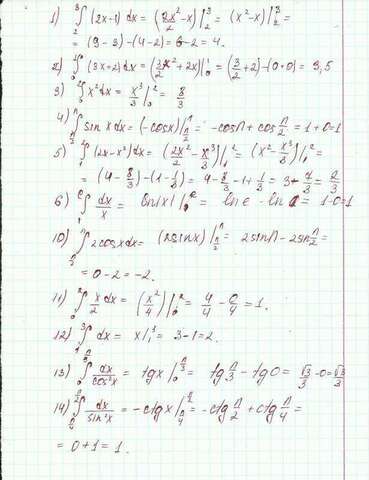 1) ∫₂³ (2x-1) dx = (2x²/2 - x)|₂³ = (x² - x)|₂³ =
= (9-3) - (4-2) = 6-2 = 4.
2) ∫₀¹ (3x+2) dx = (3x²/2 + 2x)|₀¹ = (3/2 + 2) - (0+0) = 3,5
3) ∫₀² x² dx = x³/3 |₀² = 8/3
4) ∫ sin x dx = (-cos x)| = -cos π + cos π/2 = 1+0=1
5) ∫₁² (2x-x²) dx = (2x²/2 - x³/3)|₁² = (x² - x³/3)|₁² =
= (4 - 8/3) - (1 - 1/3) = 4 - 8/3 - 1 + 1/3 = 3 + 7/3 = 2/3
6) ∫₁ᵉ dx/x = ln|x| |₁ᵉ = ln e - ln 1 = 1-0=1
10) ∫ 2cos x dx = (2 sin x)| = 2 sin π - 2 sin π/2 =
= 0-2 = -2.
11) ∫₀² x/2 dx = (x²/4)|₀² = 4/4 - 0/4 = 1.
12) ∫₁³ dx = x|₁³ = 3-1=2.
13) ∫ dx/cos²x = tg x| = tg π/3 - tg 0 = √3/3 - 0 = √3/3
14) ∫ dx/sin²x = -ctg x| = -ctg π/2 + ctg π/4 =
= 0+1 = 1.